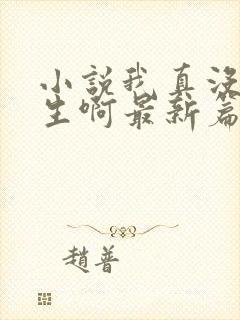 小說我真沒
生啊最新篇
趙普